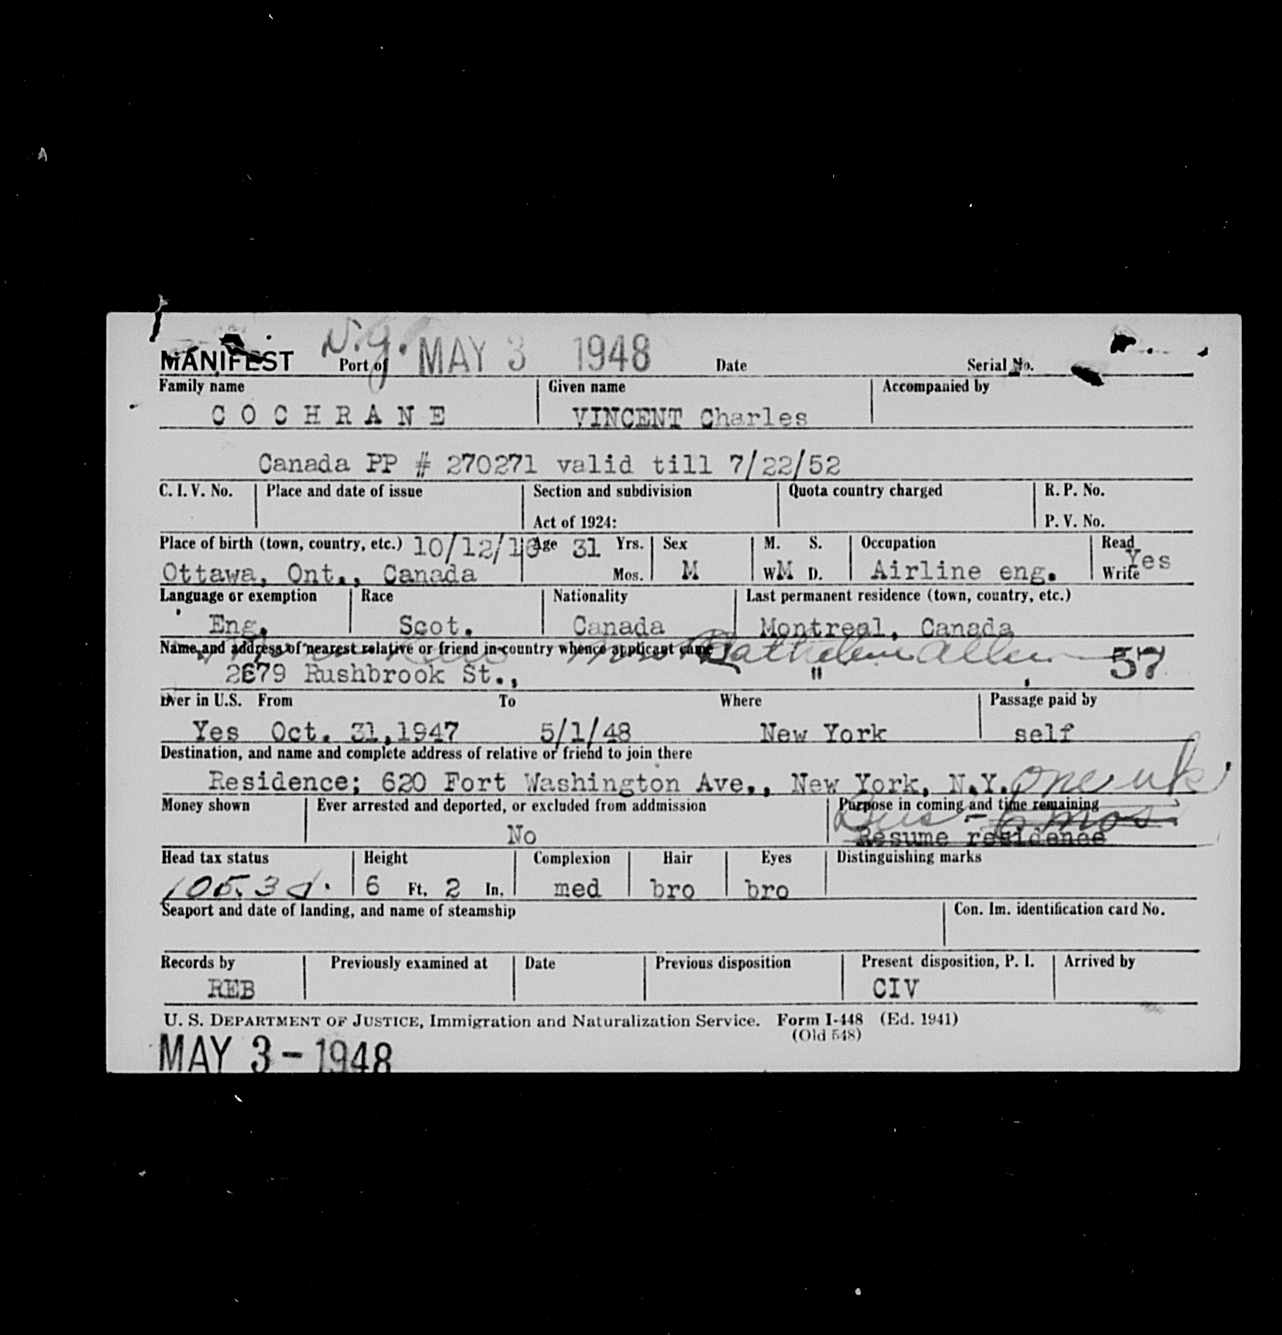 MANIFEST Port of N.Y. MAY 3 1948 Date Serial No.
Family name Given name Accompanied by
COCHRANE VINCENT Charles
Canada PP # 270271 valid till 7/22/52
C. I. V. No. Place and date of issue Section and subdivision Quota country charged R. P. No.
Act of 1924: P. V. No.
Place of birth (town, country, etc.) 10/12/16 Age 31 Yrs. Sex M. S. Occupation Read Yes
Ottawa, Ont., Canada Mos. M W M D. Airline eng. Write
Language or exemption Race Nationality Last permanent residence (town, country, etc.)
Eng. Scot. Canada Montreal, Canada
Name and address of nearest relative or friend in country whence applicant came
Allen
Rushbrook St., " , 57
Ever in U.S. From To Where Passage paid by
Yes Oct. 31,1947 5/1/48 New York self
Destination, and name and complete address of relative or friend to join there
Residence; 620 Fort Washington Ave., New York, N.Y. one wk
Money shown Ever arrested and deported, or excluded from addmission Purpose in coming and time remaining
Bus - 6 mos
No Resume residence
Head tax status Height Complexion Hair Eyes Distinguishing marks
105.3d. 6 Ft. 2 In. med bro bro
Seaport and date of landing, and name of steamship Con. Im. identification card No.
Records by Previously examined at Date Previous disposition Present disposition, P. I. Arrived by
REB CIV
U. S. DEPARTMENT OF JUSTICE, Immigration and Naturalization Service. Form I-448 (Ed. 1941)
(Old 548)
MAY 3 - 1948